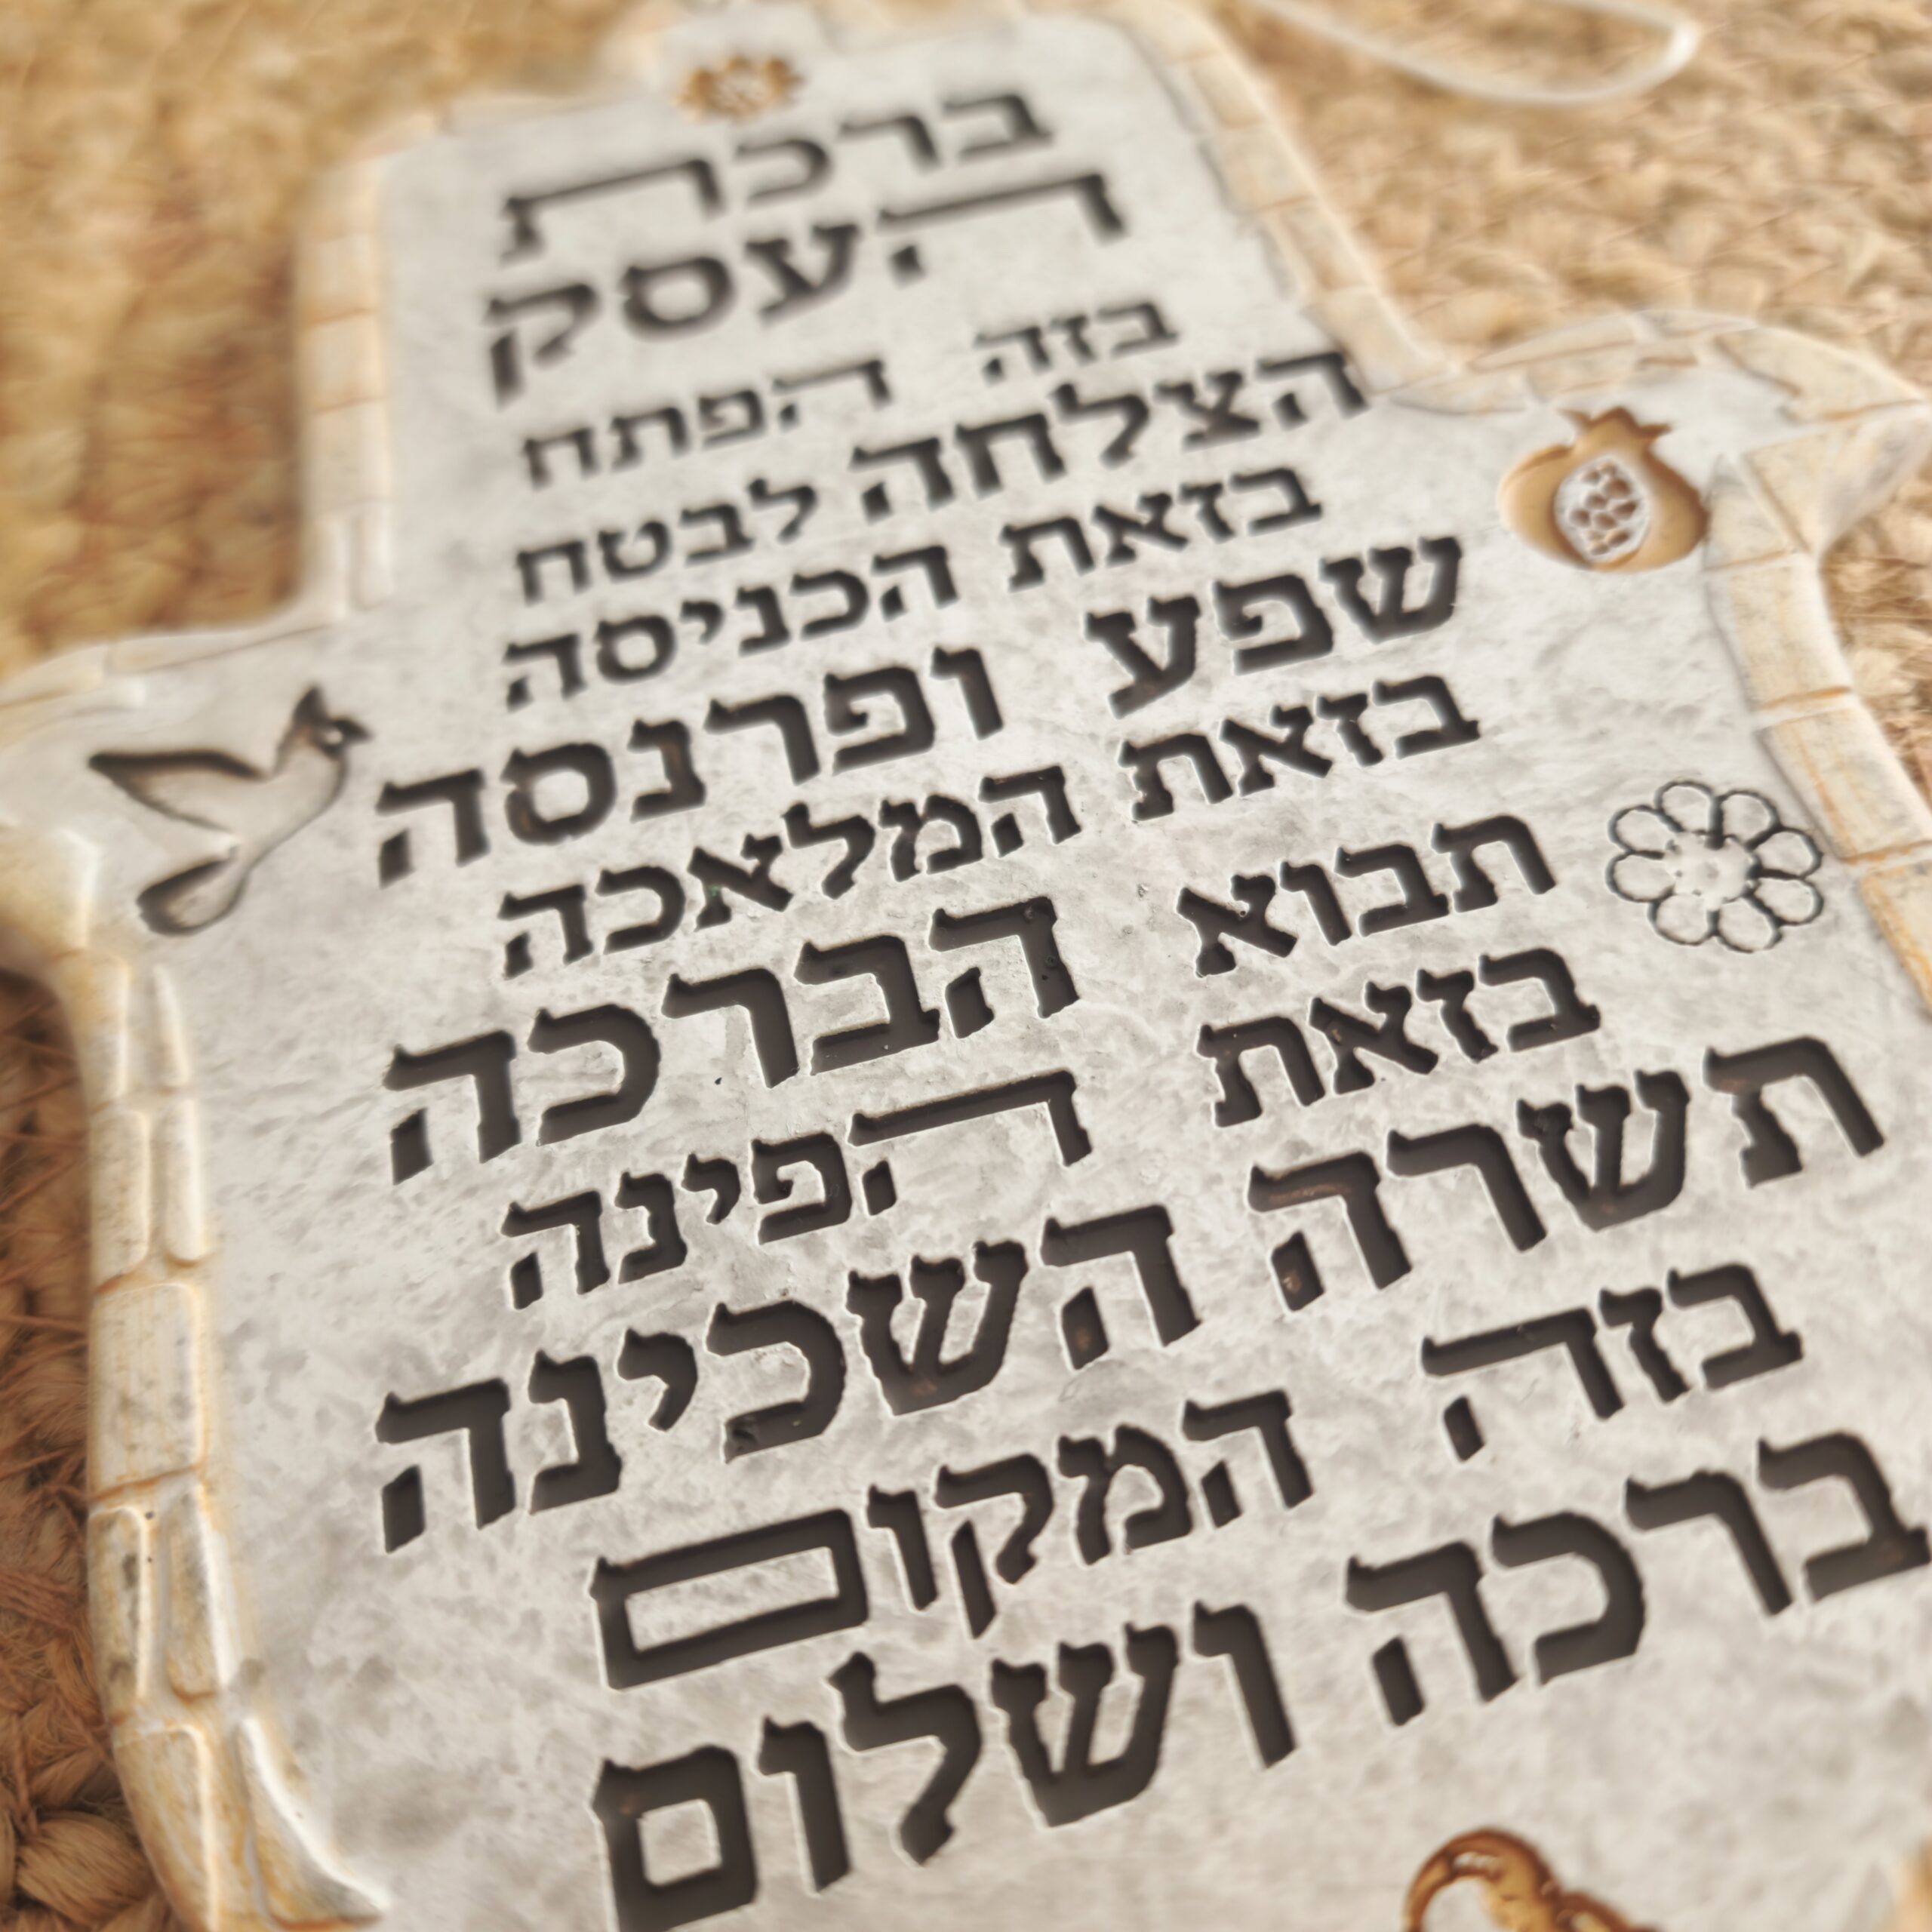 ברכת
העסק
בזה הפתח
הצלחה לבטח
בזאת הכניסה
שפע ופרנסה
בזאת המלאכה
תבוא הברכה
בזאת הפינה
תשרה השכינה
בזה המקום
ברכה ושלום